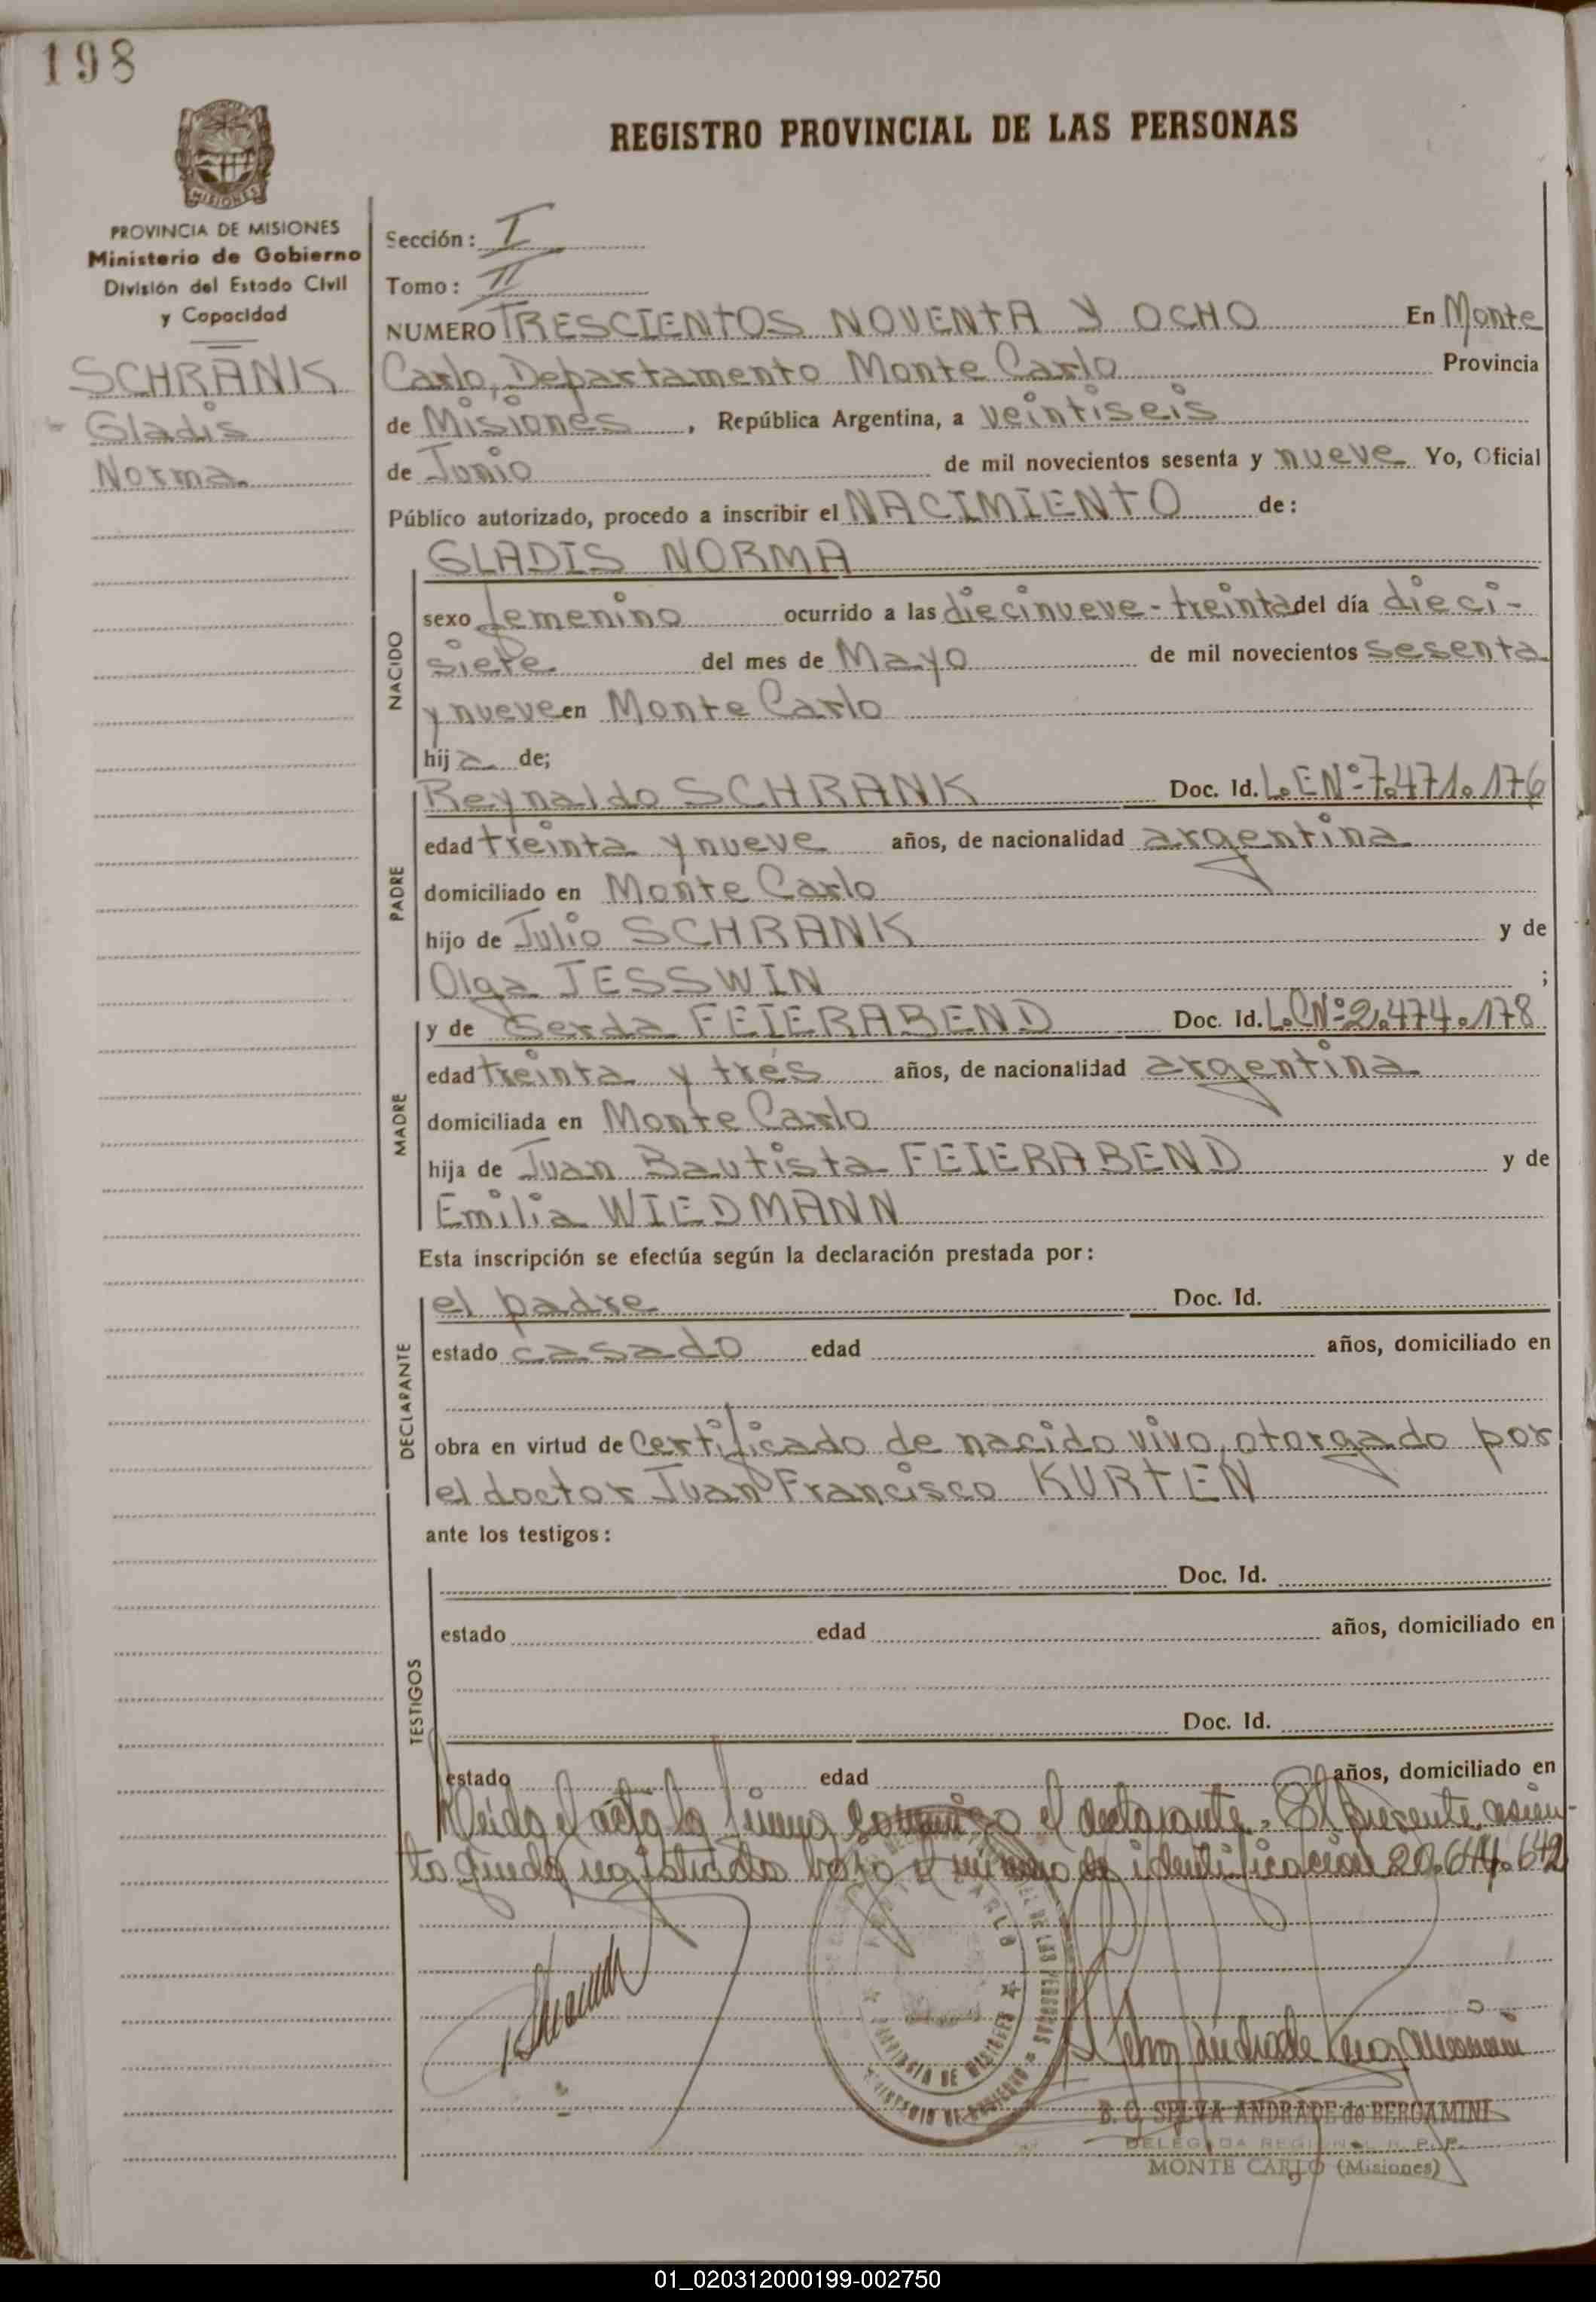 198
MISIONES
PROVINCIA DE MISIONES
Ministerio de Gobierno
División del Estado Civil
y Capacidad
SCHRANK
Gladis
Norma
REGISTRO PROVINCIAL DE LAS PERSONAS
Sección: I
Tomo: II
NUMERO TRESCIENTOS NOVENTA Y OCHO En Monte
Carlo, Departamento Monte Carlo Provincia
de Misiones, República Argentina, a veintiseis
de Junio de mil novecientos sesenta y nueve Yo, Oficial
Público autorizado, procedo a inscribir el NACIMIENTO de:
NACIDO
GLADIS NORMA
sexo femenino ocurrido a las diecinueve-treinta del día dieci-
siete del mes de Mayo de mil novecientos sesenta
y nueve en Monte Carlo
hija de;
PADRE
Reynaldo SCHRANK Doc. Id. L.E Nº 7.471.176
edad treinta y nueve años, de nacionalidad argentina
domiciliado en Monte Carlo
hijo de Julio SCHRANK y de
Olga JESSWIN ;
MADRE
y de Gerda FEIERABEND Doc. Id. L.C Nº 2.474.178
edad treinta y tres años, de nacionalidad argentina
domiciliada en Monte Carlo
hija de Juan Bautista FEIERABEND y de
Emilia WIEDMANN
Esta inscripción se efectúa según la declaración prestada por:
DECLARANTE
el padre Doc. Id.
estado casado edad años, domiciliado en
obra en virtud de Certificado de nacido vivo, otorgado por
el doctor Juan Francisco KURTEN
ante los testigos:
TESTIGOS
Doc. Id.
estado edad años, domiciliado en
Doc. Id.
estado edad años, domiciliado en
Leida el acta la firma conmigo el declarante. El presente asien-
to queda registrado bajo el número de identificación 20.644.642
PROVINCIA DE MISIONES
MINISTERIO DE GOBIERNO
B. C. SELVA ANDRADE de BERGAMINI
DELEGADA REGIONAL R. P. P.
MONTE CARLO (Misiones)
01_020312000199-002750